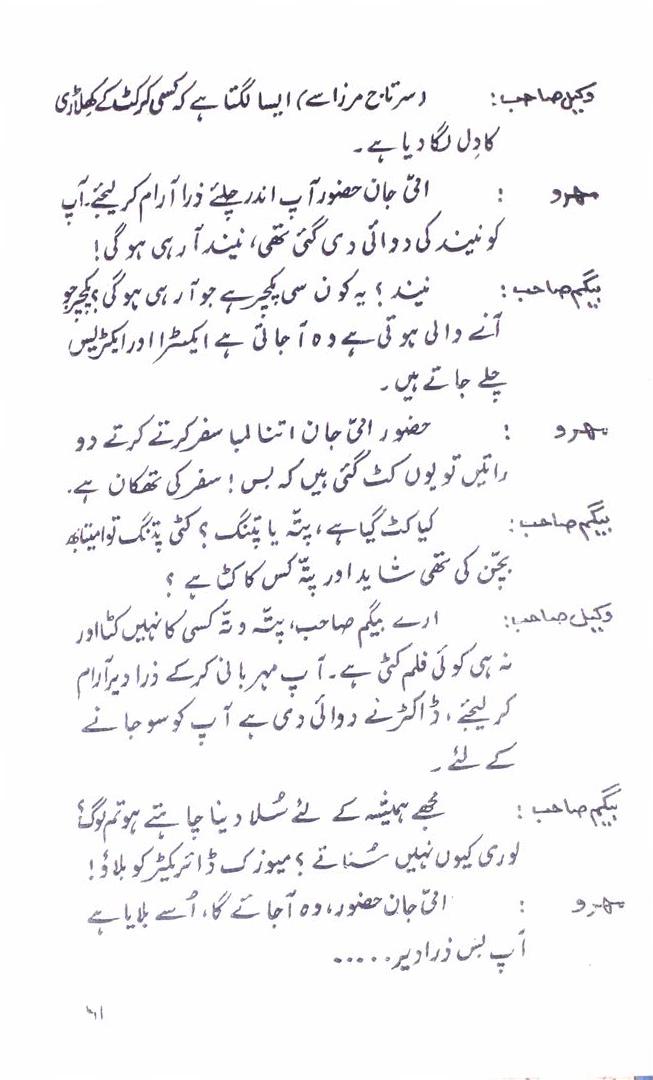 وکیل صاحب: (سرتاج مرزا سے) ایسا لگتا ہے کہ کسی کرکٹ کے کھلاڑی
کا دِل لگا دیا ہے۔
مہرو : امّی جان حضور آپ اندر چلئے ذرا آرام کر لیجئے۔ آپ
کو نیند کی دوائی دی گئی تھی، نیند آ رہی ہو گی!
بیگم صاحب: نیند؟ یہ کون سی پکچر ہے جو آ رہی ہو گی؟ پکچر جو
آنے والی ہوتی ہے وہ آ جاتی ہے ایکسٹرا اور ایکٹریس
چلے جاتے ہیں۔
مہرو : حضور امّی جان اتنا لمبا سفر کرتے کرتے دو
راتیں تو یوں کٹ گئی ہیں کہ بس! سفر کی تھکان ہے۔
بیگم صاحب: کیا کٹ گیا ہے، پتّہ یا پتنگ؟ کٹی پتنگ تو امیتابھ
بچّن کی تھی شاید اور پتّہ کس کا کٹ ہے؟
وکیل صاحب: ارے بیگم صاحب، پتّہ وتّہ کسی کا نہیں کٹا اور
نہ ہی کوئی فلم کٹی ہے۔ آپ مہربانی کر کے ذرا دیر آرام
کر لیجئے، ڈاکٹر نے دوائی دی ہے آپ کو سو جانے
کے لئے۔
بیگم صاحب: مجھے ہمیشہ کے لئے سُلا دینا چاہتے ہو تم لوگ؟
لوری کیوں نہیں سُناتے؟ میوزک ڈائریکٹر کو بلاؤ!
مہرو : امّی جان حضور، وہ آ جائے گا، اُسے بلایا ہے
آپ بس ذرا دیر.....